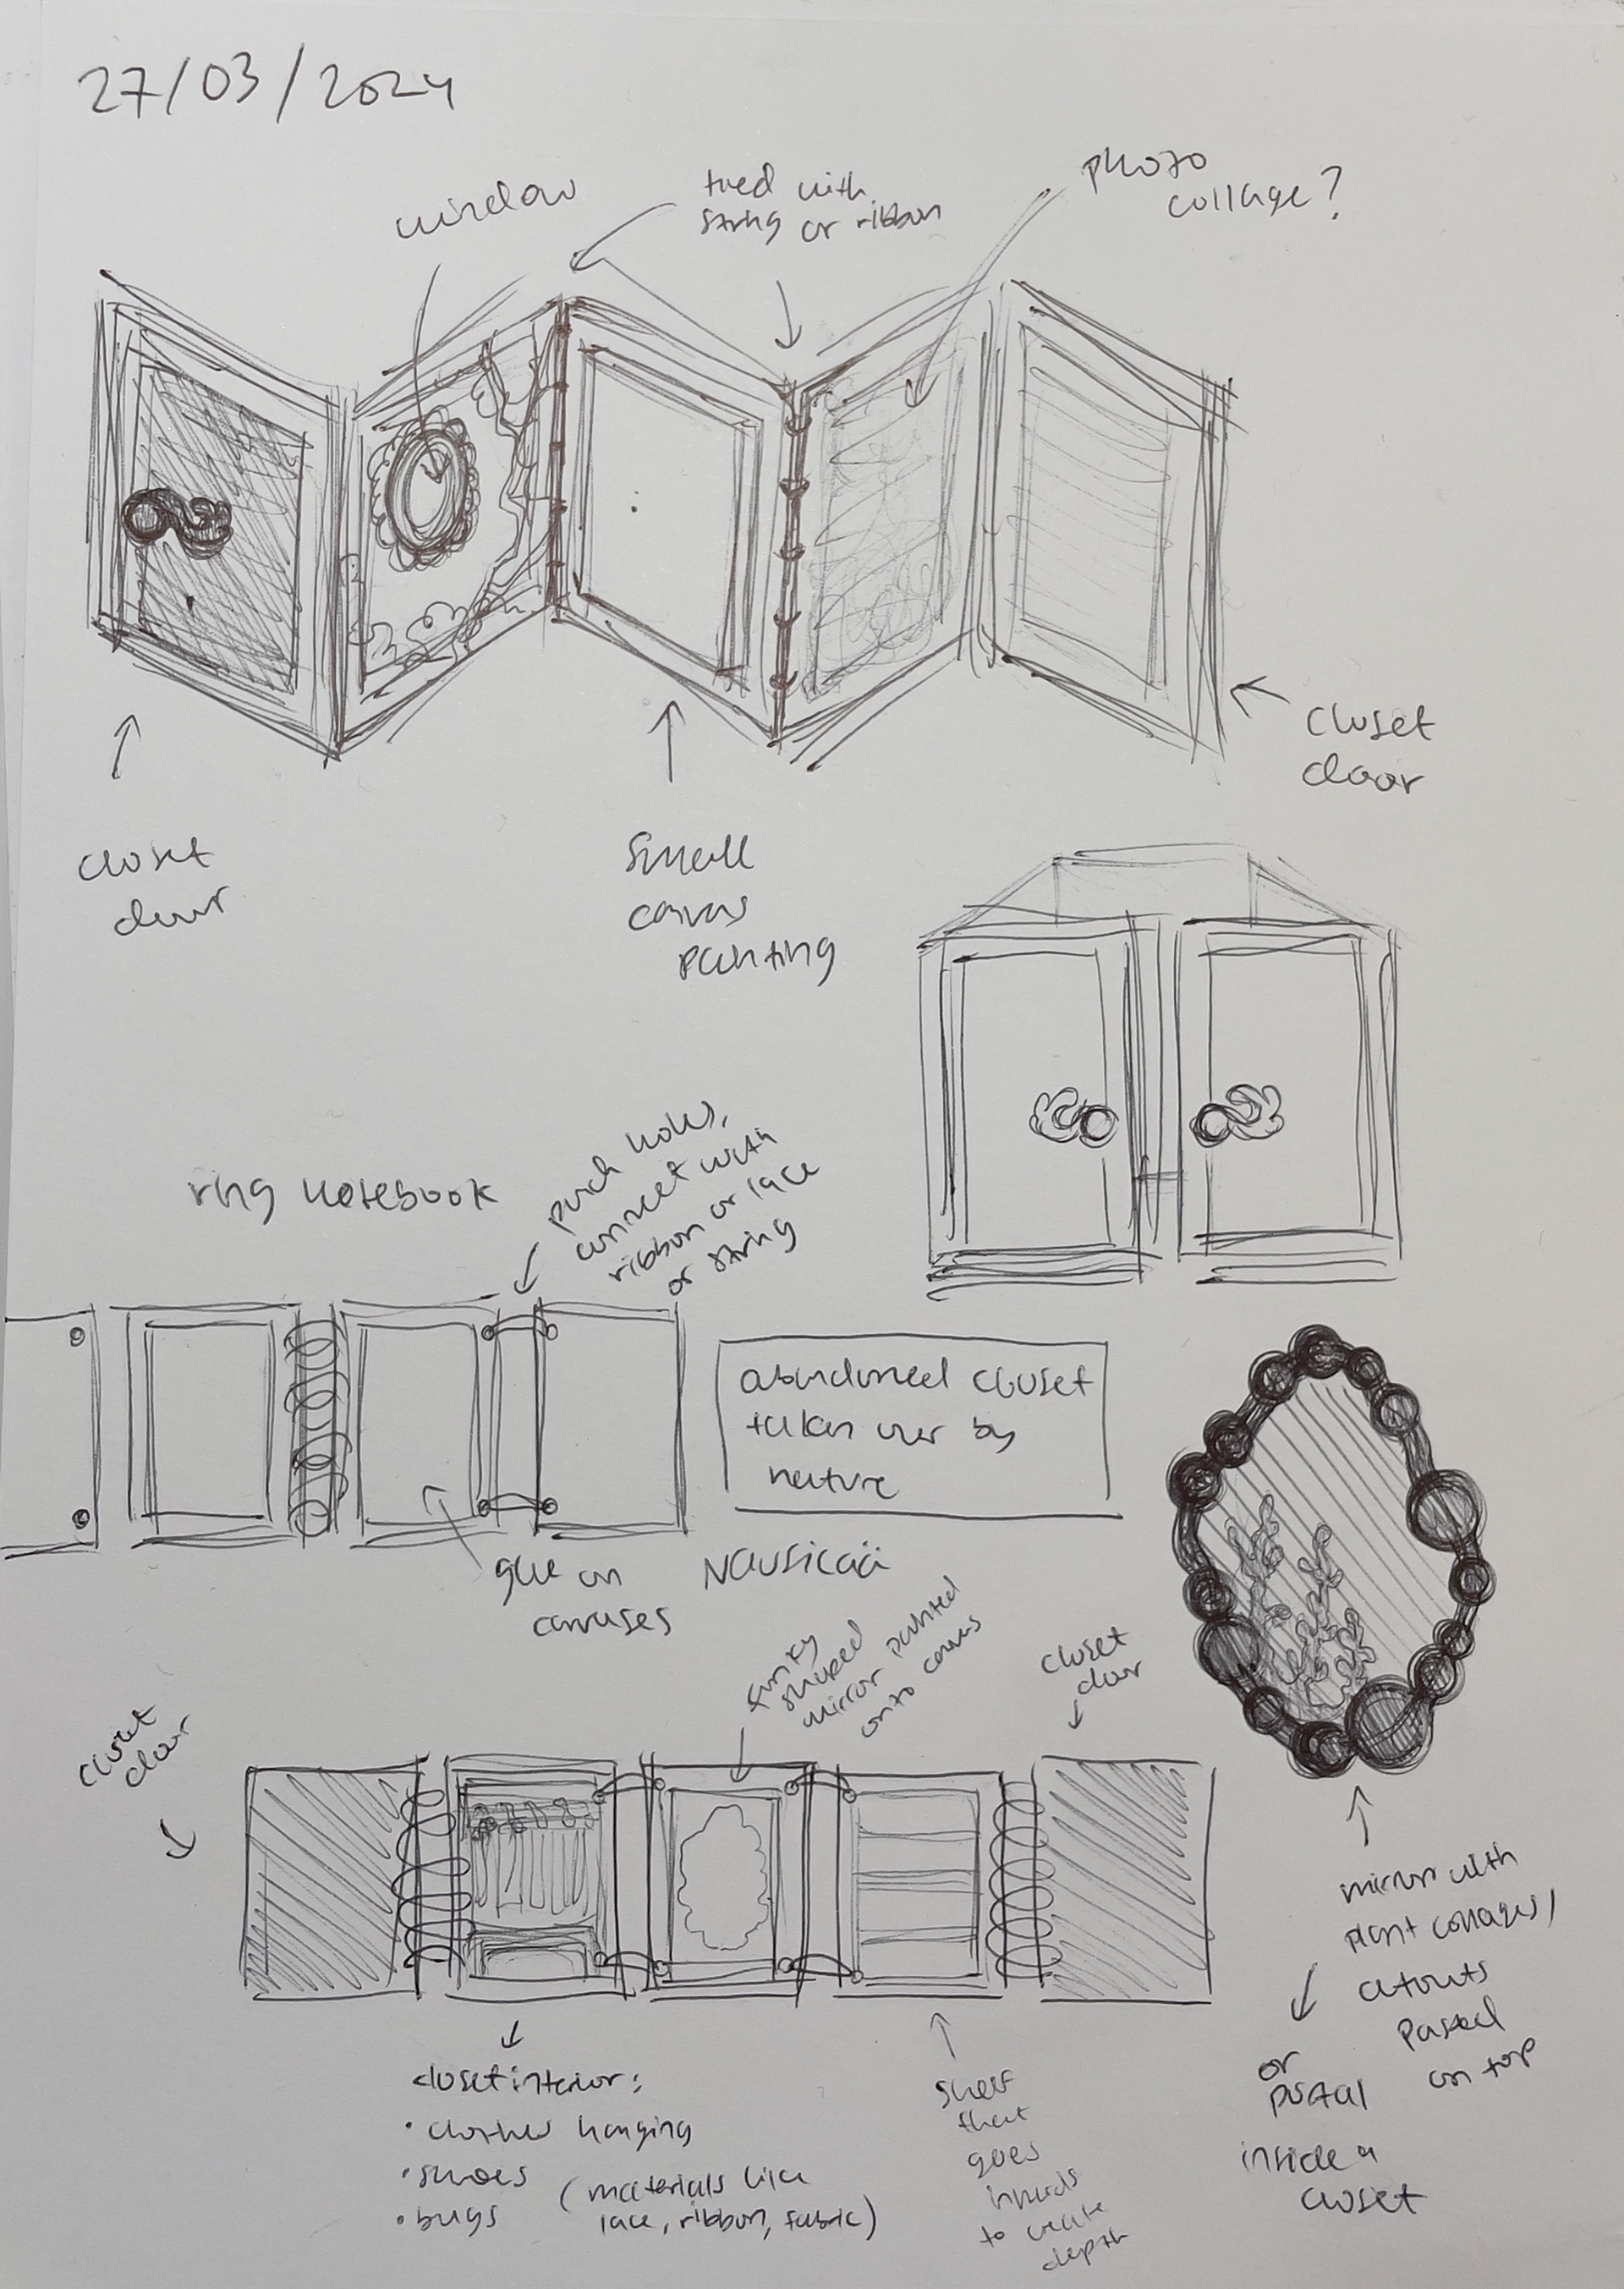 27/03/2024
window
tied with
string or ribbon
photo
collage?
closet
door
small
canvas
painting
closet
door
ring notebook
punch holes,
connect with
ribbon or lace
or string
abandoned closet
taken over by
nature
glue on
canvases
Nausicaä
funky
shaped
mirror painted
onto canvas
closet
door
closet
door
mirror with
plant collages/
cutouts
pasted
on top
or
portal
inside a
closet
closet interior:
• clothes hanging
• shoes
• bugs
(materials like
lace, ribbon, fabric)
shelf
that
goes
inwards
to create
depth